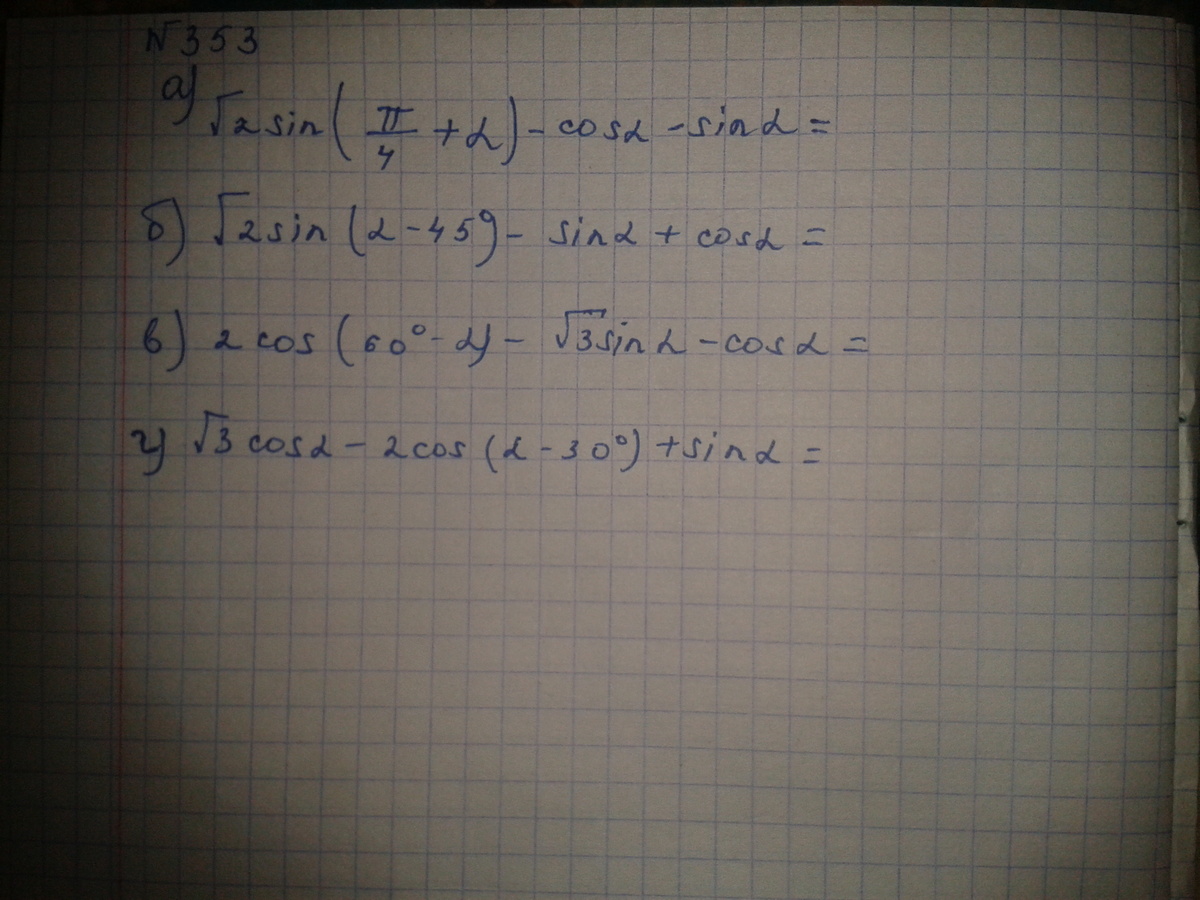 №353
а) √2 sin(π/4 + α) - cosα - sinα =
б) √2 sin (α - 45°) - sinα + cosα =
в) 2 cos (60° - α) - √3 sinα - cosα =
г) √3 cosα - 2 cos (α - 30°) + sinα =